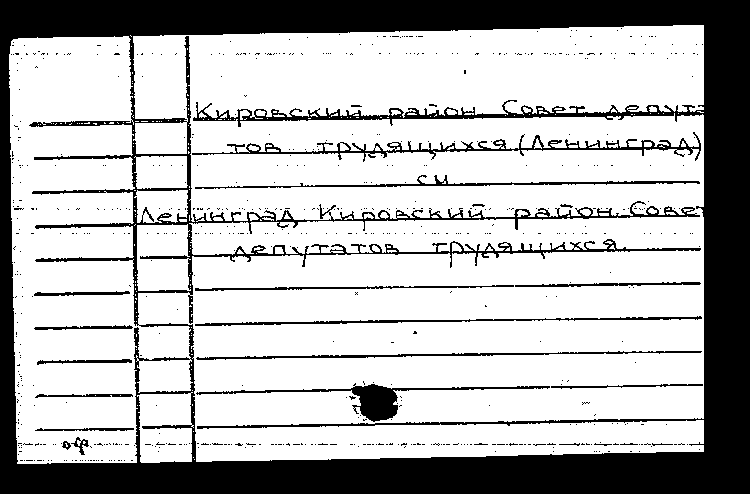 Кировский район Совет депута
тов трудящихся (Ленинград)
см
Ленинград, Кировский район. Совет
депутатов трудящихся.
оф